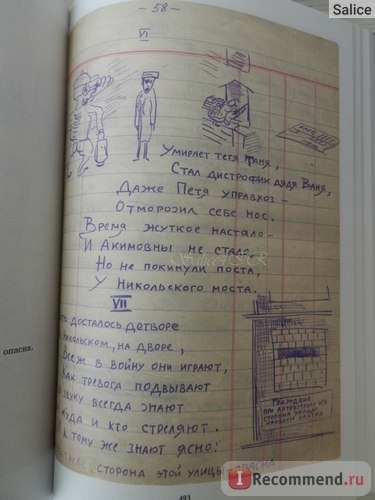 Salice
— 58 —
VI
Умирает тетя Таня,
Стал дистрофик дядя Ваня,
Даже Петя управхоз —
Отморозил себе нос.
Время жуткое настало —
И Акимовны не стало,
Но не покинули поста,
У Никольского моста.
VII
досталось детворе
Никольском, на дворе,
в войну они играют,
Как тревога подвывают
звуку всегда знают
куда и кто стреляют.
К тому же знают ясно:
сторона этой улицы опасна
опасна.
Граждане
при артобстреле эта
сторона улицы
наиболее опасна
493
Recommend.ru